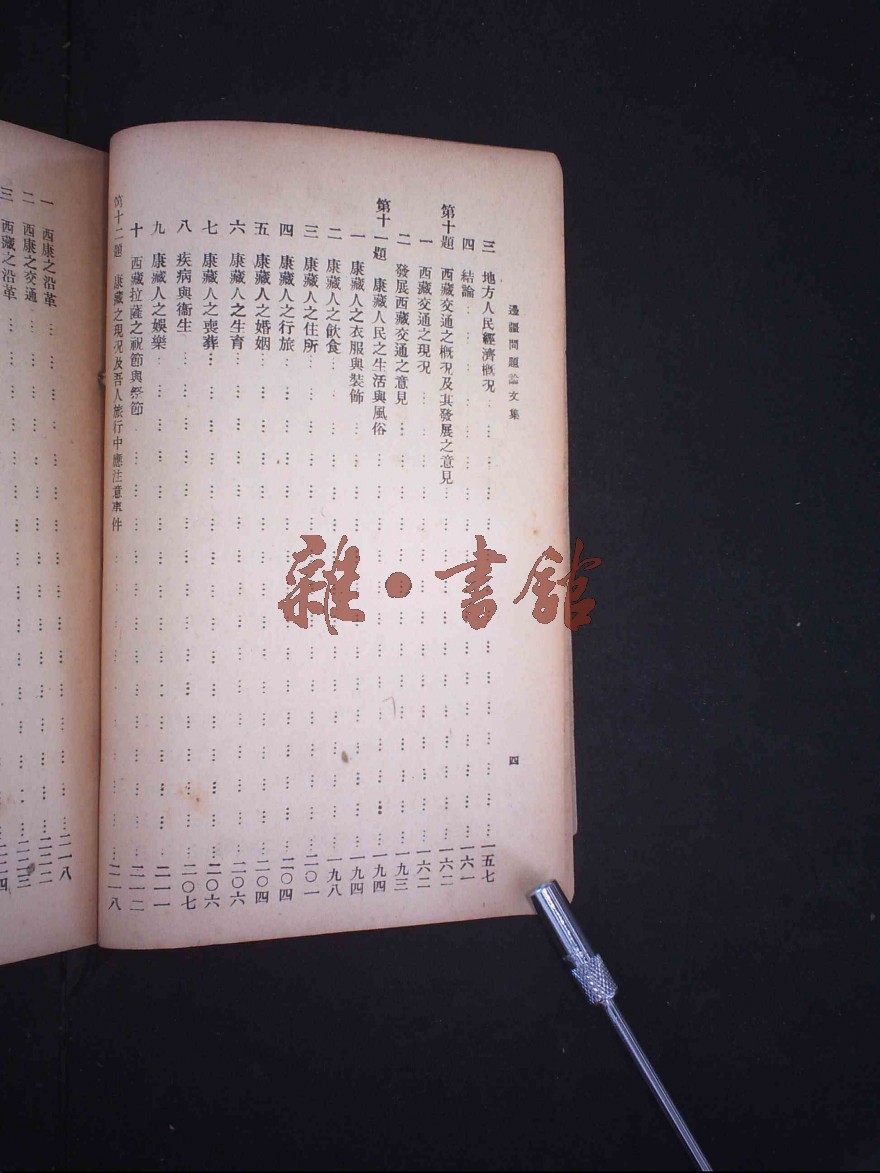 邊疆問題論文集
四
三 地方人民經濟概況 一五七
四 結論 一六一
第十題 西藏交通之概況及其發展之意見 一六二
一 西藏交通之現況 一六二
二 發展西藏交通之意見 一九三
第十一題 康藏人民之生活與風俗 一九四
一 康藏人之衣服與裝飾 一九四
二 康藏人之飲食 一九八
三 康藏人之住所 二〇一
四 康藏人之行旅 二〇四
五 康藏人之婚姻 二〇四
六 康藏人之生育 二〇六
七 康藏人之喪葬 二〇六
八 疾病與衞生 二〇七
九 康藏人之娛樂 二一一
十 西藏拉薩之祝節與祭節 二一二
第十二題 康藏之現況及吾人旅行中應注意事件 二一八
一 西康之沿革 二一八
二 西康之交通 二二二
三 西藏之沿革
雜·書館